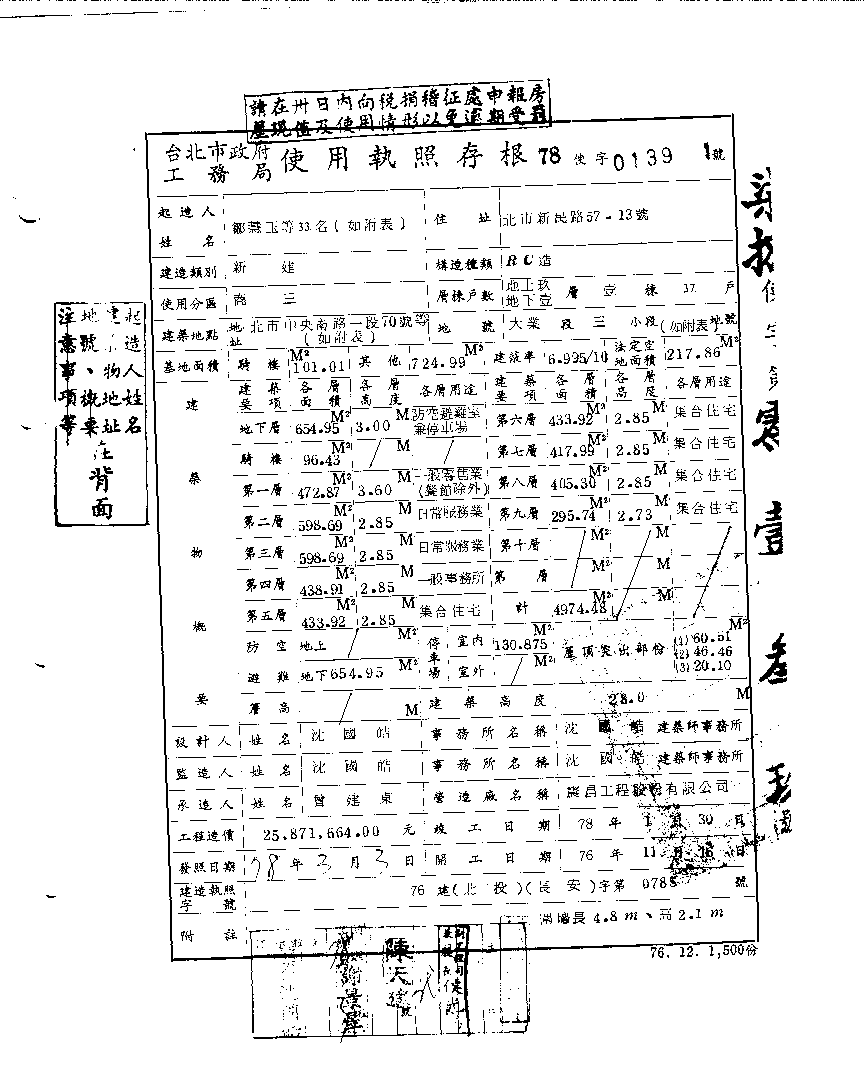 請在卅日內向稅捐稽征處申報房
屋現值及使用情形以免逾期受罰
台北市政府
工務局
使用執照存根 78 使字 0139 1號
起造人姓名 鄒燕玉等33名(如附表) 住址 北市新民路57-13號
建造類別 新建 構造種類 RC造
使用分區 商三 層棟戶數 地上玖 地下壹 層壹棟 37 戶
建築地點 地址 北市中央南路一段70號等(如附表) 地號 大業段三小段(如附表)地號
基地面積 騎樓 101.01 M² 其他 724.99 M² 建蔽率 6.995/10 法定空地面積 217.86 M²
建築物概要
建築要項 各層面積 各層高度 各層用途 建築要項 各層面積 各層高度 各層用途
地下層 654.95 M² 3.00 M 防空避難室兼停車場 第六層 433.92 M² 2.85 M 集合住宅
騎樓 96.43 M² M 第七層 417.99 M² 2.85 M 集合住宅
第一層 472.87 M² 3.60 M 一般零售業(餐館除外) 第八層 405.30 M² 2.85 M 集合住宅
第二層 598.69 M² 2.85 M 日常服務業 第九層 295.74 M² 2.73 M 集合住宅
第三層 598.69 M² 2.85 M 日常服務業 第十層 M² M
第四層 438.91 M² 2.85 M 一般事務所 第 層 M² M
第五層 433.92 M² 2.85 M 集合住宅 計 4974.48 M² M
防空 地上 M² 停車場 室內 130.875 M² 屋頂突出部份 (1) 60.51 (2) 46.46 (3) 20.10 M²
避難 地下 654.95 M² 室外 M²
層高 M 建築高度 28.0 M
設計人 姓名 沈國皓 事務所名稱 沈國皓建築師事務所
監造人 姓名 沈國皓 事務所名稱 沈國皓建築師事務所
承造人 姓名 曾建東 營造廠名稱 昌工程股份有限公司
工程造價 25,871,664.00 元 竣工日期 78 年 1 月 30 日
發照日期 78 年 3 月 3 日 開工日期 76 年 11 月 16 日
建造執照字號 76 建(北投)(長安)字第 0785 號
附註 牆長 4.8 m、高 2.1 m
76. 12. 1,500份
起造人姓名
建物地址
地號、概要
注意事項等
在背面
使字第
零壹叁
陳天